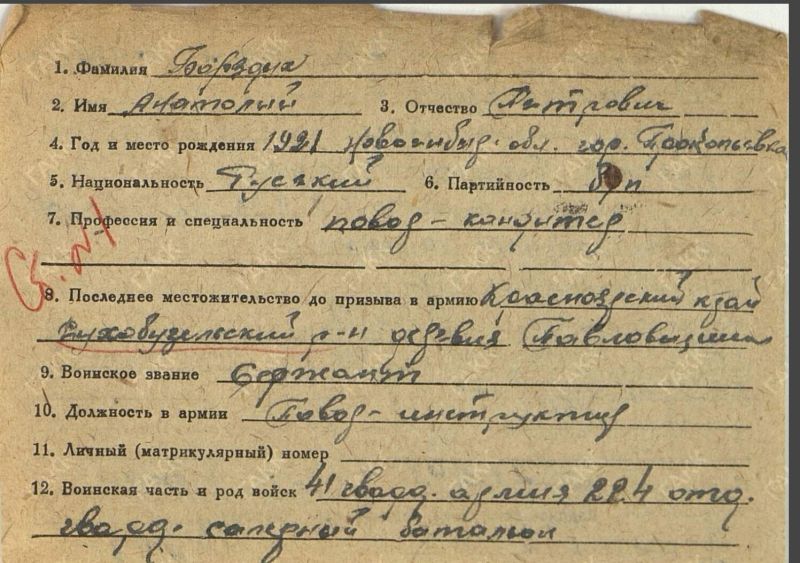 1. Фамилия Борздих
2. Имя Анатолий 3. Отчество Петрович
4. Год и место рождения 1921 Новосибир. обл. гор. Прокопьевка
5. Национальность Русский 6. Партийность б/п
7. Профессия и специальность повар - кандитер
Сб. №1
8. Последнее местожительство до призыва в армию Красноярский край
Сухобузимский р-н деревня
9. Воинское звание Сержант
10. Должность в армии Повар - инструктор
11. Личный (матрикулярный) номер
12. Воинская часть и род войск 41 гвард. армия 224 отд.
гвард. саперный баталион